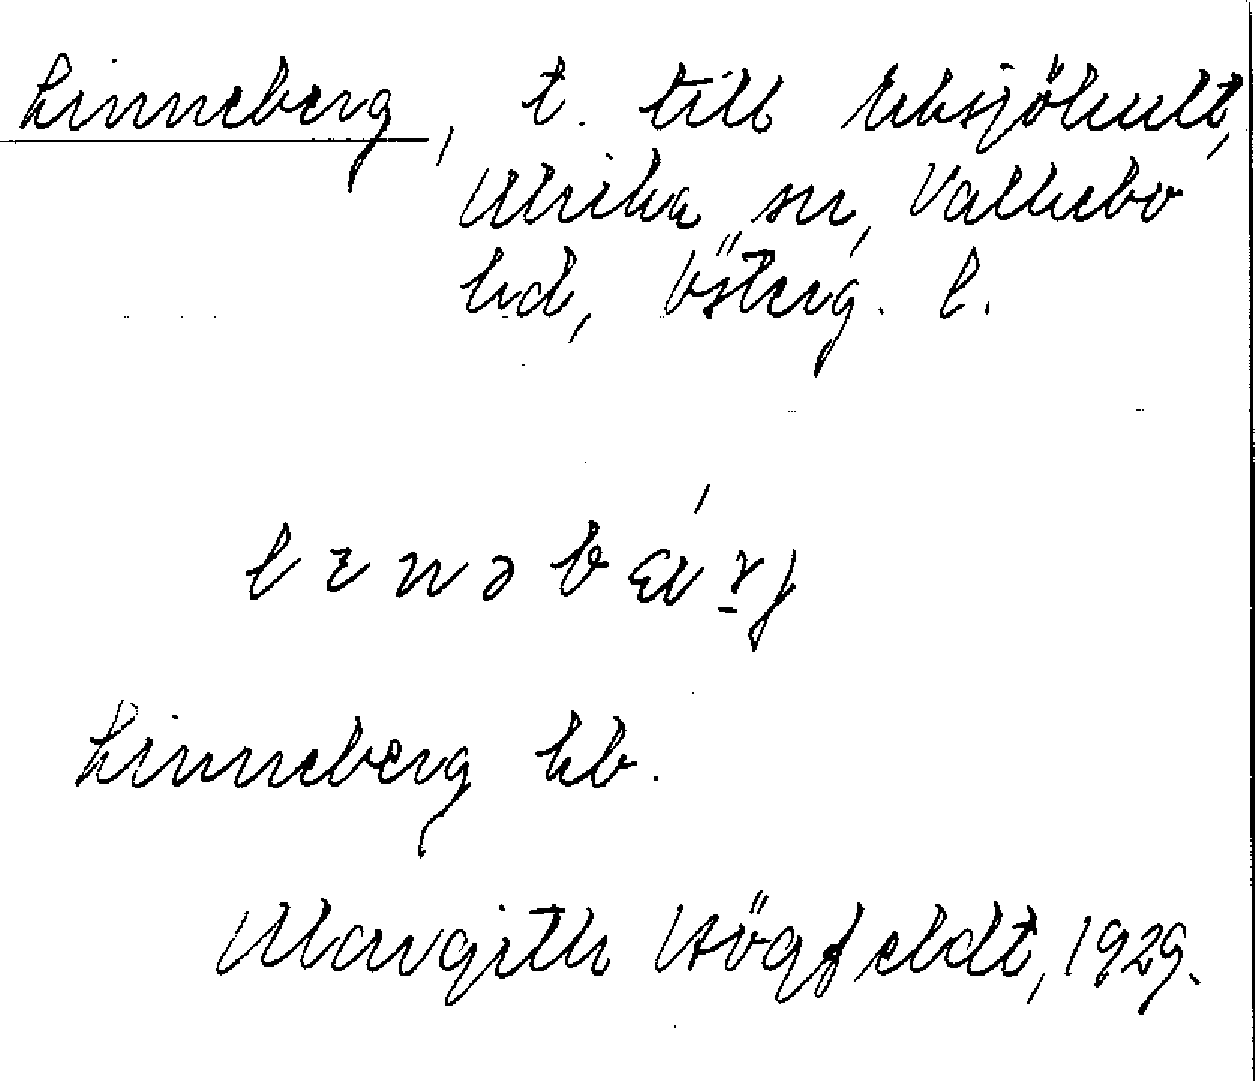 Linneberg, t. till Eksjöhult,
Ulrika sn, Valkebo
hd, Österg. l.
Linneberg kb.
Margith Högfeldt, 1929.